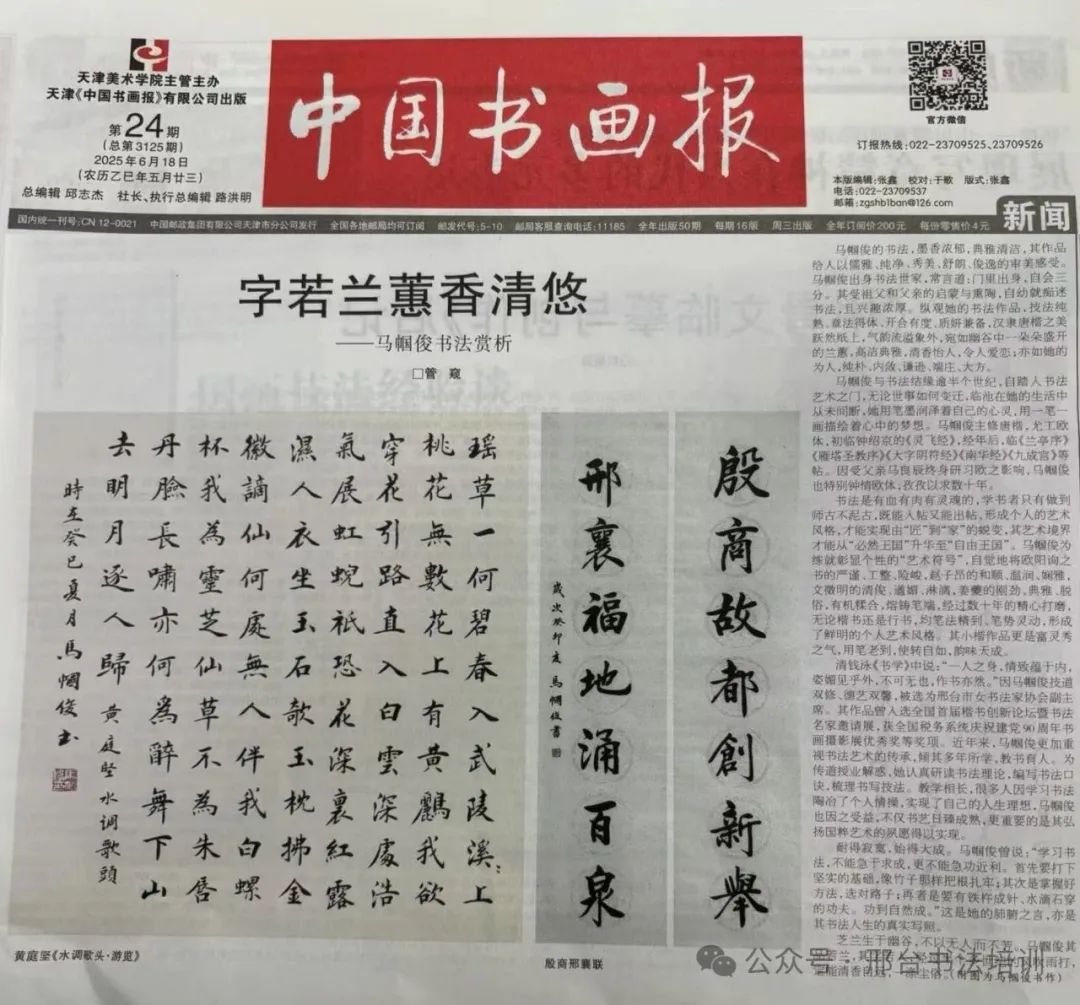 天津美术学院主管主办
天津《中国书画报》有限公司出版
第24期
(总第3125期)
2025年6月18日
(农历乙巳年五月廿三)
总编辑 邱志杰 社长、执行总编辑 路洪明
中国书画报
官方微信
订报热线:022-23709525、23709526
本版编辑:张鑫 校对:于歌 版式:张鑫
电话:022-23709537
邮箱:zgshb1ban@126.com
国内统一刊号:CN 12-0021 中国邮政集团有限公司天津市分公司发行 全国各地邮局均可订阅 邮发代号:5-10 邮局客服查询电话:11185 全年出版50期 每期16版 周三出版 全年订阅价200元 每份零售价4元
新闻
字若兰蕙香清悠
——马帼俊书法赏析
□管 窥
瑶草一何碧春入武陵溪:上
桃花無數花上有黄鸝我欲
穿花引路直入白雲深處浩
氣展虹蜺祇恐花深裏紅露
濕人衣坐玉石欹玉枕拂金
徽謫仙何處無人伴我白螺
杯我為靈芝仙草不為朱唇
丹臉長嘯亦何為醉舞下山
去明月逐人歸 黄庭堅 水调歌頭
時在癸巳夏月馬帼俊书
黄庭坚《水调歌头·游览》
殷商故都創新舉
邢襄福地涌百泉
歲次癸卯夏馬帼俊書
殷商邢襄联
马帼俊的书法,墨香浓郁,典雅清洁,其作品
给人以儒雅、纯净、秀美、舒朗、俊逸的审美感受。
马帼俊出身书法世家,常言道:门里出身,自会三
分。其受祖父和父亲的启蒙与熏陶,自幼就痴迷
书法,且兴趣浓厚。纵观她的书法作品,技法纯
熟、章法得体、开合有度、质妍兼备,汉隶唐楷之美
跃然纸上,气韵流溢象外,宛如幽谷中一朵朵盛开
的兰蕙,高洁典雅,清香怡人,令人爱恋;亦如她的
为人,纯朴、内敛、谦逊、端庄、大方。
马帼俊与书法结缘逾半个世纪,自踏入书法
艺术之门,无论世事如何变迁,临池在她的生活中
从未间断,她用笔墨润泽着自己的心灵,用一笔一
画描绘着心中的梦想。马帼俊主修唐楷,尤工欧
体,初临钟绍京的《灵飞经》,经年后,临《兰亭序》
《雁塔圣教序》《大字阴符经》《南华经》《九成宫》等
帖。因受父亲马良辰终身研习欧之影响,马帼俊
也特别钟情欧体,孜孜以求数十年。
书法是有血有肉有灵魂的,学书者只有做到
师古不泥古,既能入帖又能出帖,形成个人的艺术
风格,才能实现由“匠”到“家”的蜕变,其艺术境界
才能从“必然王国”升华至“自由王国”。马帼俊为
练就彰显个性的“艺术符号”,自觉地将欧阳询之
书的严谨、工整、险峻,赵子昂的和顺、温润、娴雅,
文徵明的清俊、遒媚、淋漓,姜夔的刚劲、典雅、脱
俗,有机糅合,熔铸笔端,经过数十年的精心打磨,
无论楷书还是行书,均笔法精到、笔势灵动,形成
了鲜明的个人艺术风格。其小楷作品更是富灵秀
之气,用笔老到,使转自如,韵味天成。
清钱泳《书学》中说:“一人之身,情致蕴于内,
姿媚见乎外,不可无也,作书亦然。”因马帼俊技道
双修、德艺双馨,被选为邢台市女书法家协会副主
席。其作品曾入选全国首届楷书创新论坛暨书法
名家邀请展,获全国税务系统庆祝建党90周年书
画摄影展优秀奖等奖项。近年来,马帼俊更加重
视书法艺术的传承,倾其多年所学,教书育人。为
传道授业解惑,她认真研读书法理论,编写书法口
诀,梳理书写技法。教学相长,很多人因学习书法
陶冶了个人情操,实现了自己的人生理想,马帼俊
也因之受益,不仅书艺日臻成熟,更重要的是其弘
扬国粹艺术的夙愿得以实现。
耐得寂寞,始得大成。马帼俊曾说:“学习书
法,不能急于求成,更不能急功近利。首先要打下
坚实的基础,像竹子那样把根扎牢;其次是掌握好
方法,选对路子;再者是要有铁杵成针、水滴石穿
的功夫。功到自然成。”这是她的肺腑之言,亦是
其书法人生的真实写照。
芝兰生于幽谷,不以无人而不芳。马帼俊其
(附图为马帼俊书作)
公众号·邢台书法培训